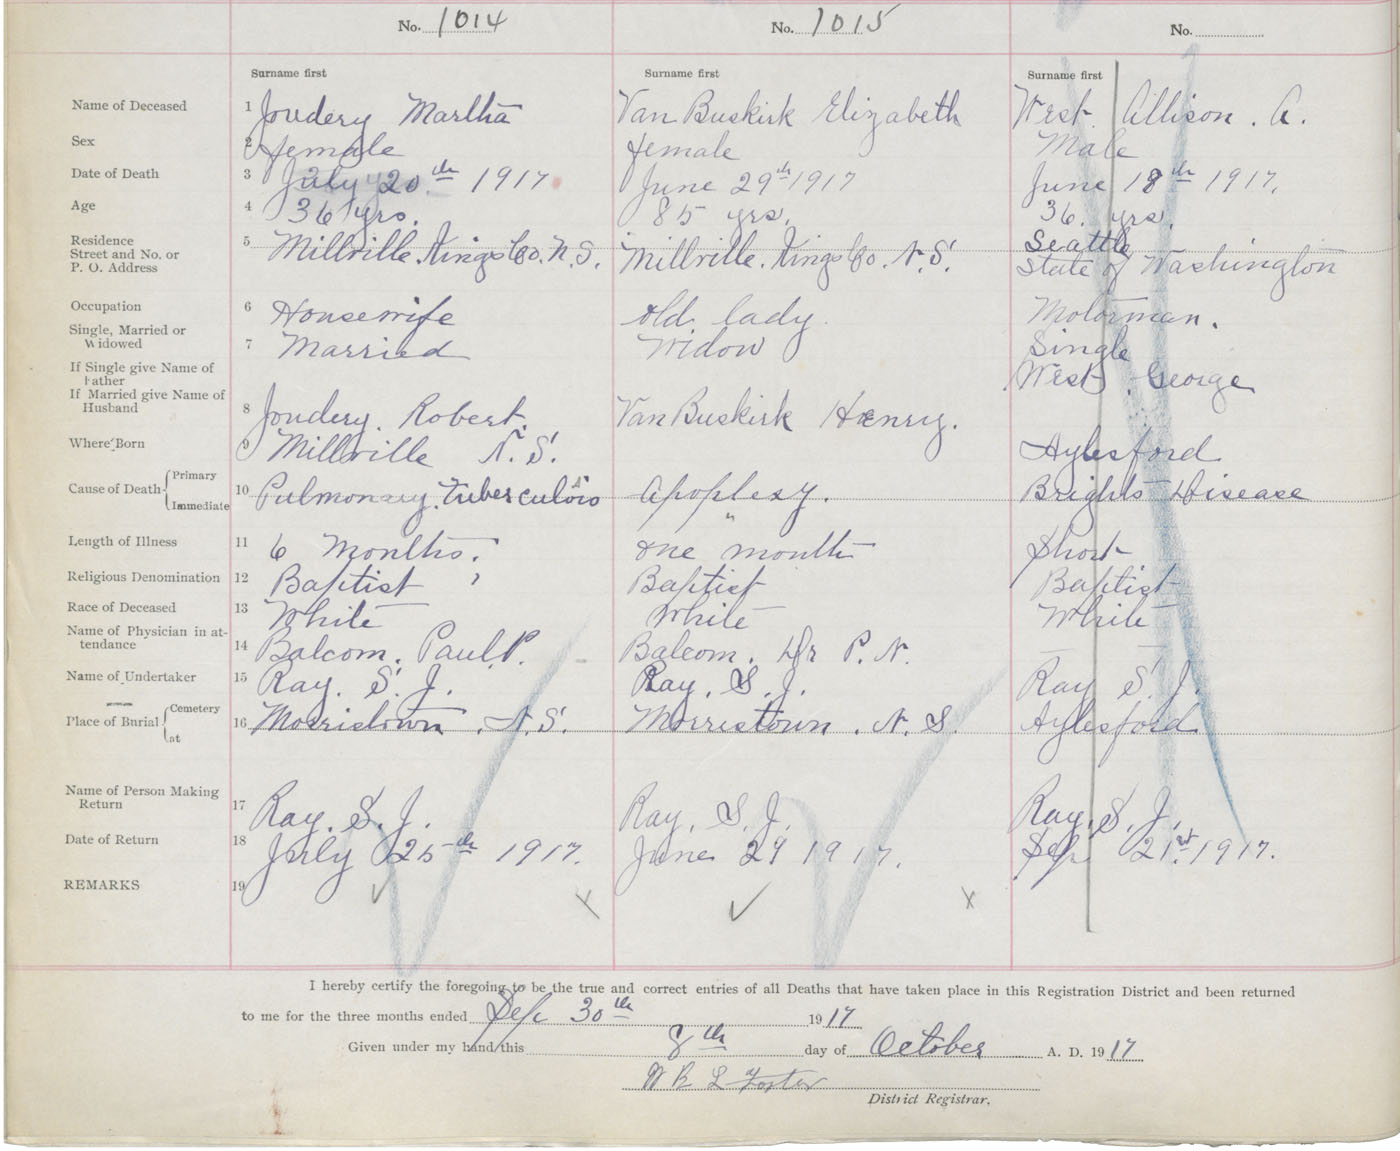 No. 1014 No. 1015 No.
Surname first Surname first Surname first
Name of Deceased 1 Joudery Martha Van Buskirk Elizabeth West Allison. A.
Sex 2 female female Male
Date of Death 3 July 20th 1917 June 29th 1917 June 18th 1917.
Age 4 36 yrs. 85 yrs. 36. yrs.
Residence
Street and No. or
P. O. Address 5 Millville. Kings Co. N. S. Millville. Kings Co. N. S. Seattle
State of Washington
Occupation 6 Housewife old lady. Motorman.
Single, Married or
Widowed 7 Married Widow Single
If Single give Name of
Father West George
If Married give Name of
Husband 8 Joudery. Robert. Van Buskirk Henry.
Where Born 9 Millville N. S. Aylesford
Cause of Death { Primary
Immediate 10 Pulmonary. Tuberculosis Apoplexy. Brights Disease
"
Length of Illness 11 6 Months. one month Short
Religious Denomination 12 Baptist Baptist Baptist
Race of Deceased 13 White White White
Name of Physician in at-
tendance 14 Balcom. Paul. P. Balcom. Dr P. N. — —
Name of Undertaker 15 Ray. S. J. Ray. S. J. Ray S. J.
Place of Burial { Cemetery
at 16 Morristown. N. S. Morristown. N. S. Aylesford
Name of Person Making
Return 17 Ray. S. J. Ray. S. J. Ray. S. J.
Date of Return 18 July 25th 1917. June 29 1917. Sep. 21st. 1917.
REMARKS 19 ✓ x ✓ x
I hereby certify the foregoing to be the true and correct entries of all Deaths that have taken place in this Registration District and been returned
to me for the three months ended Sep 30th 1917
Given under my hand this 8th day of October A. D. 1917
W B L Foster
District Registrar.